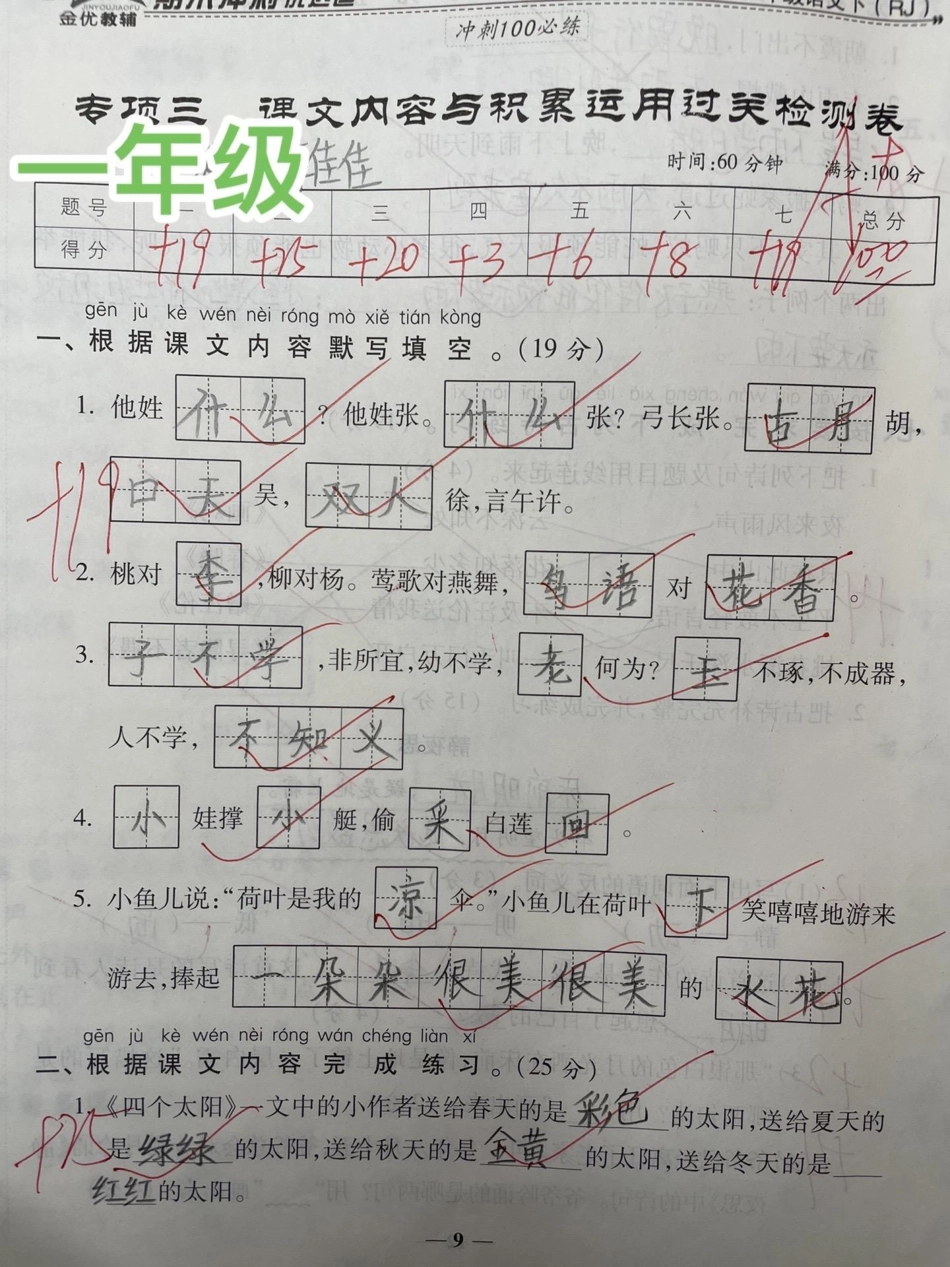 JINYOUJIAOFU
金优教辅
语文下(RJ)
冲刺100必练
专项三 课文内容与积累运用过关检测卷
一年级
佳佳
时间:60分钟 满分:100分
题号 一 二 三 四 五 六 七 总分
得分 +19 +25 +20 +3 +6 +8 +19 100
gēn jù kè wén nèi róng mò xiě tián kòng
一、根据课文内容默写填空。(19分)
1. 他姓什么?他姓张。什么张?弓长张。古月胡,
口天吴,双人徐,言午许。
+19
2. 桃对李,柳对杨。莺歌对燕舞,鸟语对花香。
3. 子不学,非所宜,幼不学,老何为?玉不琢,不成器,
人不学,不知义。
4. 小娃撑小艇,偷采白莲回。
5. 小鱼儿说:“荷叶是我的凉伞。”小鱼儿在荷叶下笑嘻嘻地游来
游去,捧起一朵朵很美很美的水花。
gēn jù kè wén nèi róng wán chéng liàn xí
二、根据课文内容完成练习。(25分)
1.《四个太阳》一文中的小作者送给春天的是彩色的太阳,送给夏天的
+25
是绿绿的太阳,送给秋天的是金黄的太阳,送给冬天的是
红红的太阳。
— 9 —